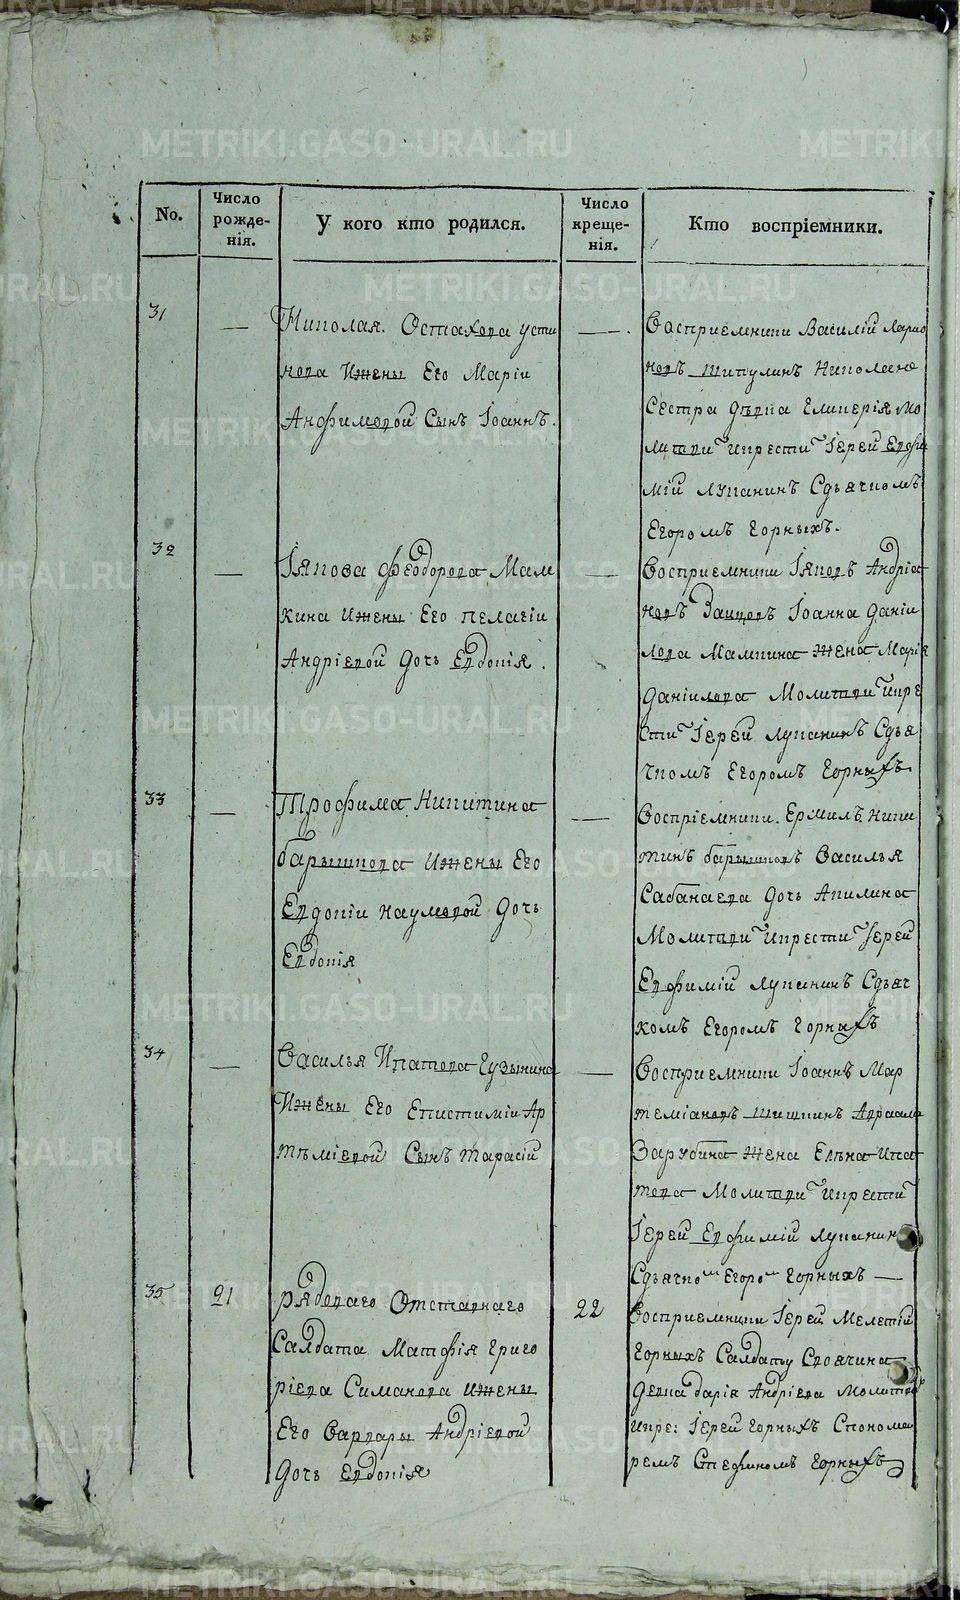 METRIKI.GASO-URAL.RU
No.
Число рожде-нія.
У кого кто родился.
Число креще-нія.
Кто воспріемники.
31
—
Николая Остахова Усти
нова Ижены Его Маріи
Анфимовой Сынъ Іоаннъ.
—
Восприемники Василій Ларио
новъ Шипулинъ Николаяже
Сестра Девка Гликерія Мо
литви икрести Іерей Евфи
мій Лупанинъ Сдьячкомъ
Егоромъ Горныхъ.
32
—
Іякова Феодорова Мам
кина Ижены Его Пелагіи
Андріевой Дочь Евдокія.
—
Восприемники Іяковъ Андріа
новъ Зайцовъ Іоанна Даніи
лова Мамкина Жена Марія
Даніилова Молитви икре
сти Іерей Лупанинъ Сдья
чкомъ Егоромъ Горныхъ
33
—
Трофима Никитина
барышнова Ижены Его
Евдокіи Наумовой Дочь
Евдокія
—
Воспріемники. Ермилъ Ники
тинъ барышновъ Василья
Сабанаева Дочь Акилина
Молитви икрести Іерей
Евфимій Лупанинъ Сдьяч
комъ Егоромъ Горныхъ
34
—
Василья Ипатова Гузынина
Ижены Его Епистиміи Ар
тѣміевой Сынъ Тарасій
—
Восприемники Іоаннъ Мар
темiановъ Шишкинъ Авраама
Зарубина Жена Елѣна Ипа
това Молитви икрести
Іерей Евфимій Лупанинъ
Сдьячко Егоро Горныхъ —
35
21
Рядоваго Отставнаго
Салдата Матфія Григо
ріева Симанова Ижены
Его Варвары Андріевой
Дочь Евдокія
22
Восприемники Іерей Мелетій
Горныхъ
Девка Дарія Андріева Молитво
икре: Іерей Горныхъ Спонома
ремъ Стефаномъ Горныхъ